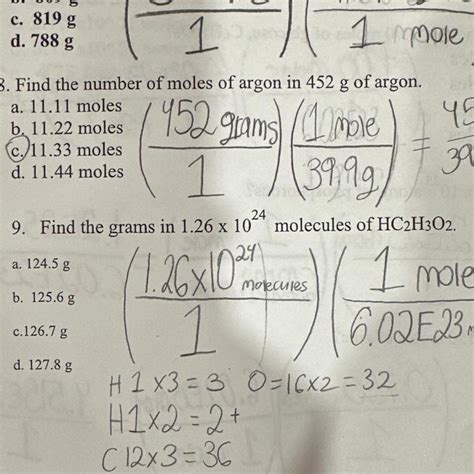 c. 819 g
d. 788 g
1
1 mmole
8. Find the number of moles of argon in 452 g of argon.
a. 11.11 moles
b. 11.22 moles
c. 11.33 moles
d. 11.44 moles
(452 grams / 1) (1 mole / 39.9g) = 45 / 39
9. Find the grams in 1.26 x 10^24 molecules of HC2H3O2.
a. 124.5 g
b. 125.6 g
c.126.7 g
d. 127.8 g
(1.26x10^24 molecules / 1) (1 mole / 6.02E23
H 1 x3 = 3 O=16x2 = 32
H1x2 = 2+
C 12x3 = 36